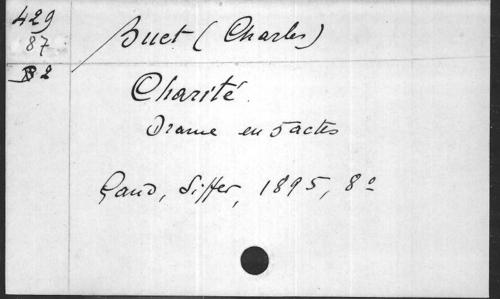 429
87
B 2
Buet (Charles)
Charité.
Drame en 5 actes
Gand, Siffer, 1895, 8º